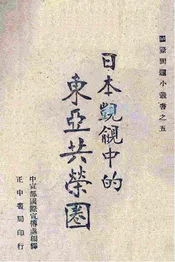 國際問題小叢書之五
日本覬覦中的
東亞共榮圈
中宣部國際宣傳處編譯
正中書局印行